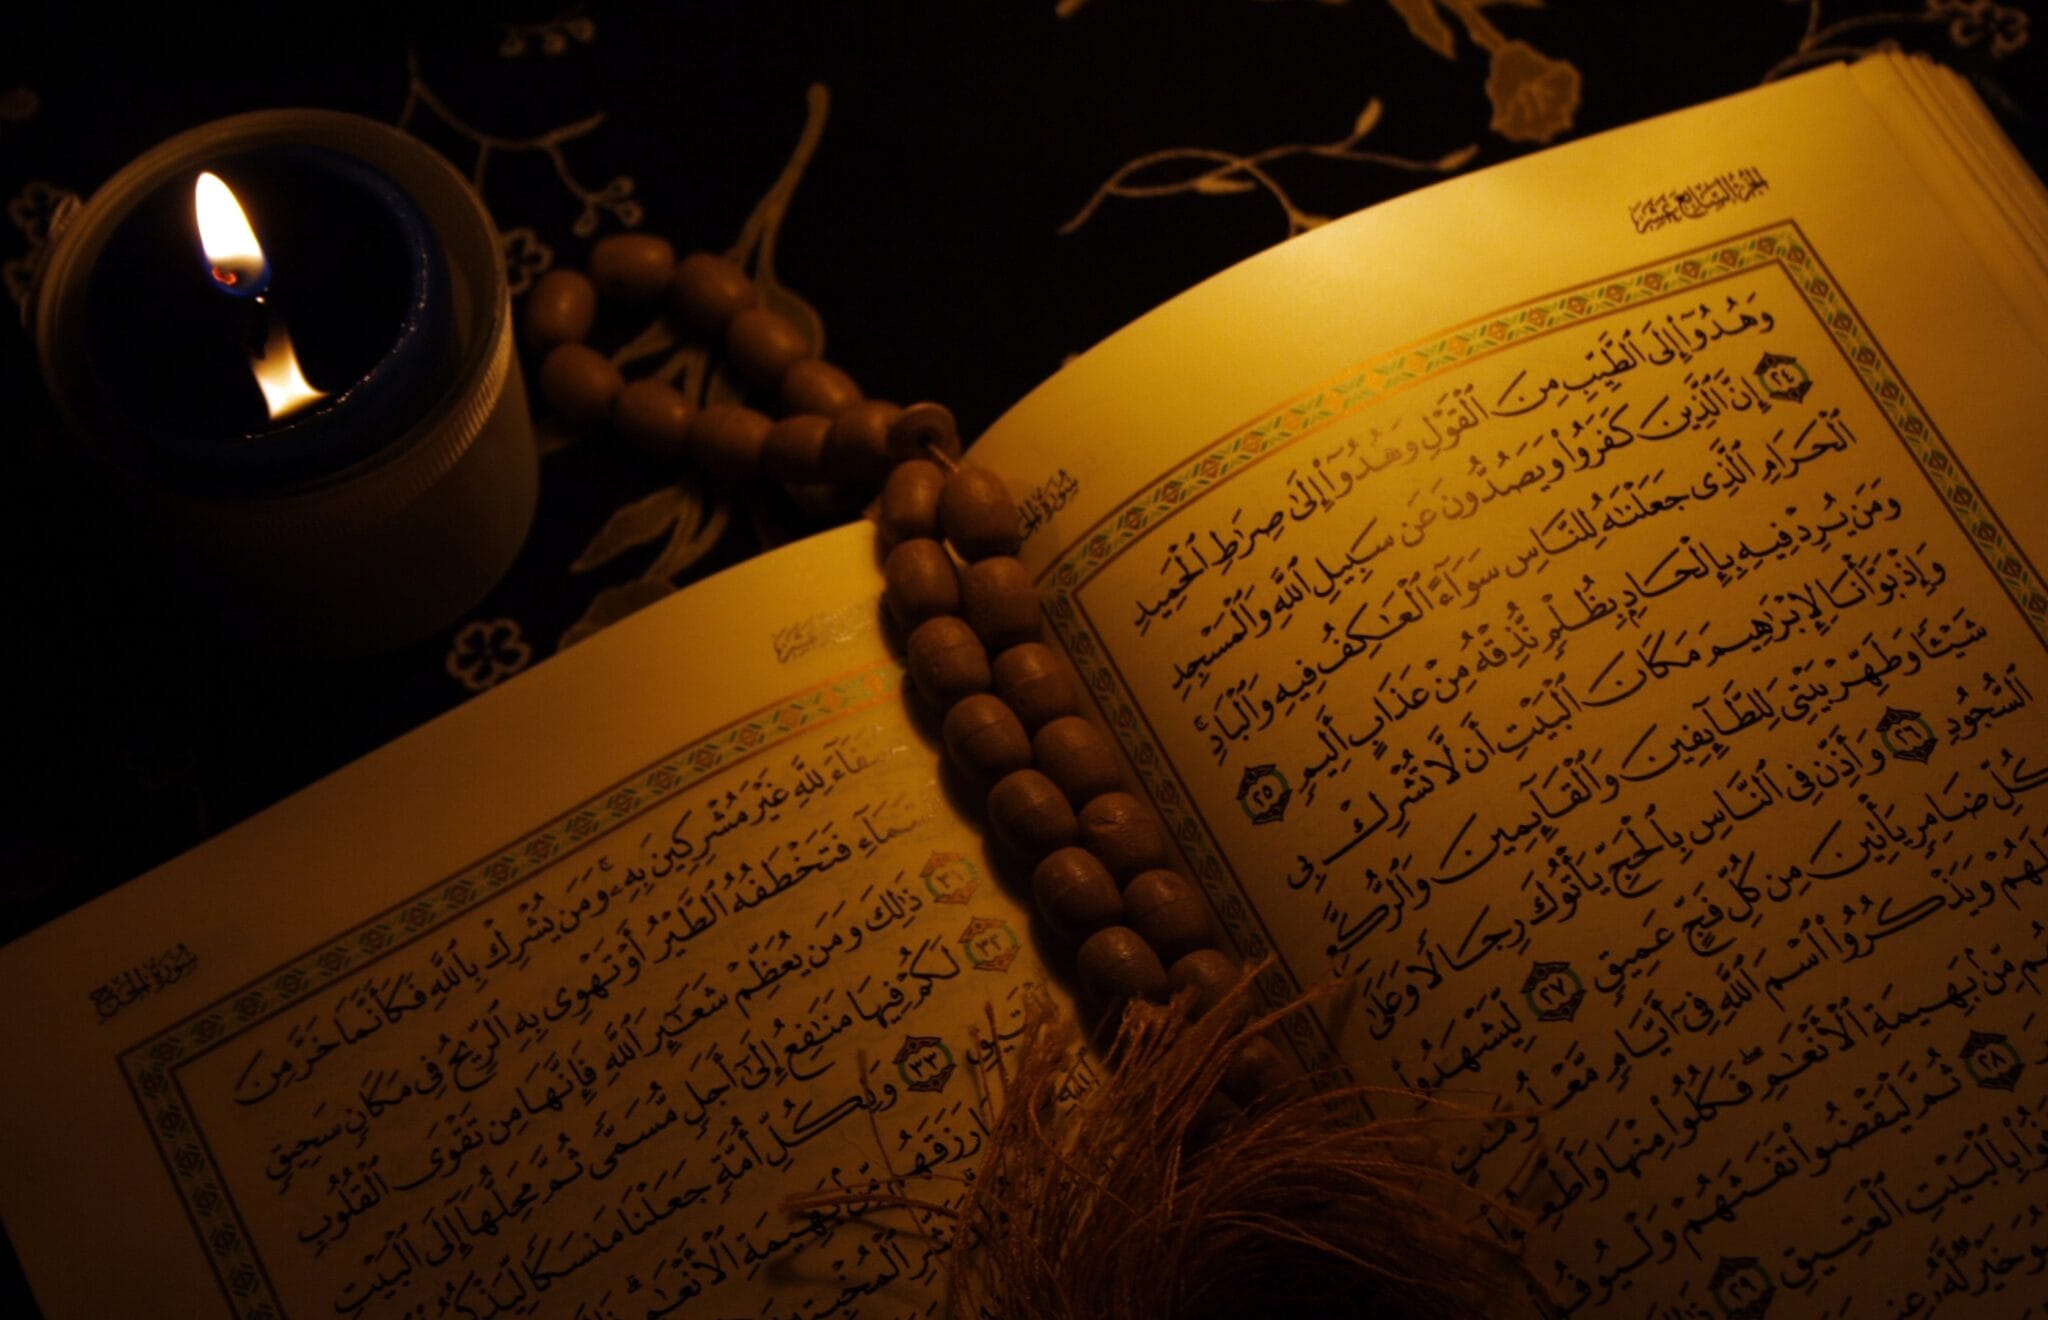 الجزء السابع عشر
سورة الحج
وَهُدُوٓا۟ إِلَى ٱلطَّيِّبِ مِنَ ٱلْقَوْلِ وَهُدُوٓا۟ إِلَىٰ صِرَٰطِ ٱلْحَمِيدِ
٢٤ إِنَّ ٱلَّذِينَ كَفَرُوا۟ وَيَصُدُّونَ عَن سَبِيلِ ٱللَّهِ وَٱلْمَسْجِدِ
ٱلْحَرَامِ ٱلَّذِى جَعَلْنَٰهُ لِلنَّاسِ سَوَآءً ٱلْعَٰكِفُ فِيهِ وَٱلْبَادِ ۚ
وَمَن يُرِدْ فِيهِ بِإِلْحَادٍۭ بِظُلْمٍ نُّذِقْهُ مِنْ عَذَابٍ أَلِيمٍ ٢٥
وَإِذْ بَوَّأْنَا لِإِبْرَٰهِيمَ مَكَانَ ٱلْبَيْتِ أَن لَّا تُشْرِكْ بِى
شَيْـًٔا وَطَهِّرْ بَيْتِىَ لِلطَّآئِفِينَ وَٱلْقَآئِمِينَ وَٱلرُّكَّعِ
ٱلسُّجُودِ ٢٦ وَأَذِّن فِى ٱلنَّاسِ بِٱلْحَجِّ يَأْتُوكَ رِجَالًا وَعَلَىٰ
كُلِّ ضَامِرٍ يَأْتِينَ مِن كُلِّ فَجٍّ عَمِيقٍ ٢٧ لِّيَشْهَدُوا۟
لَهُمْ وَيَذْكُرُوا۟ ٱسْمَ ٱللَّهِ فِىٓ أَيَّامٍ مَّعْلُومَٰتٍ
مِّنۢ بَهِيمَةِ ٱلْأَنْعَٰمِ ۖ فَكُلُوا۟ مِنْهَا وَأَطْعِمُوا۟
٢٨ ثُمَّ لْيَقْضُوا۟ تَفَثَهُمْ وَلْيُوفُوا۟
بِٱلْبَيْتِ ٱلْعَتِيقِ ٢٩
خَيْرٌ لَّهُۥ عِندَ
سورة الحج
لِلَّهِ غَيْرَ مُشْرِكِينَ بِهِۦ ۚ وَمَن يُشْرِكْ بِٱللَّهِ فَكَأَنَّمَا خَرَّ مِنَ
فَتَخْطَفُهُ ٱلطَّيْرُ أَوْ تَهْوِى بِهِ ٱلرِّيحُ فِى مَكَانٍ سَحِيقٍ
٣١ ذَٰلِكَ وَمَن يُعَظِّمْ شَعَٰٓئِرَ ٱللَّهِ فَإِنَّهَا مِن تَقْوَى ٱلْقُلُوبِ
٣٢ لَكُمْ فِيهَا مَنَٰفِعُ إِلَىٰٓ أَجَلٍ مُّسَمًّى ثُمَّ مَحِلُّهَآ إِلَى ٱلْبَيْتِ
٣٣ وَلِكُلِّ أُمَّةٍ جَعَلْنَا مَنسَكًا لِّيَذْكُرُوا۟
ٱللَّهِ
رَزَقَهُم مِّنۢ بَهِيمَةِ ٱلْأَنْعَٰمِ ۗ
ٱلْمُخْبِتِينَ